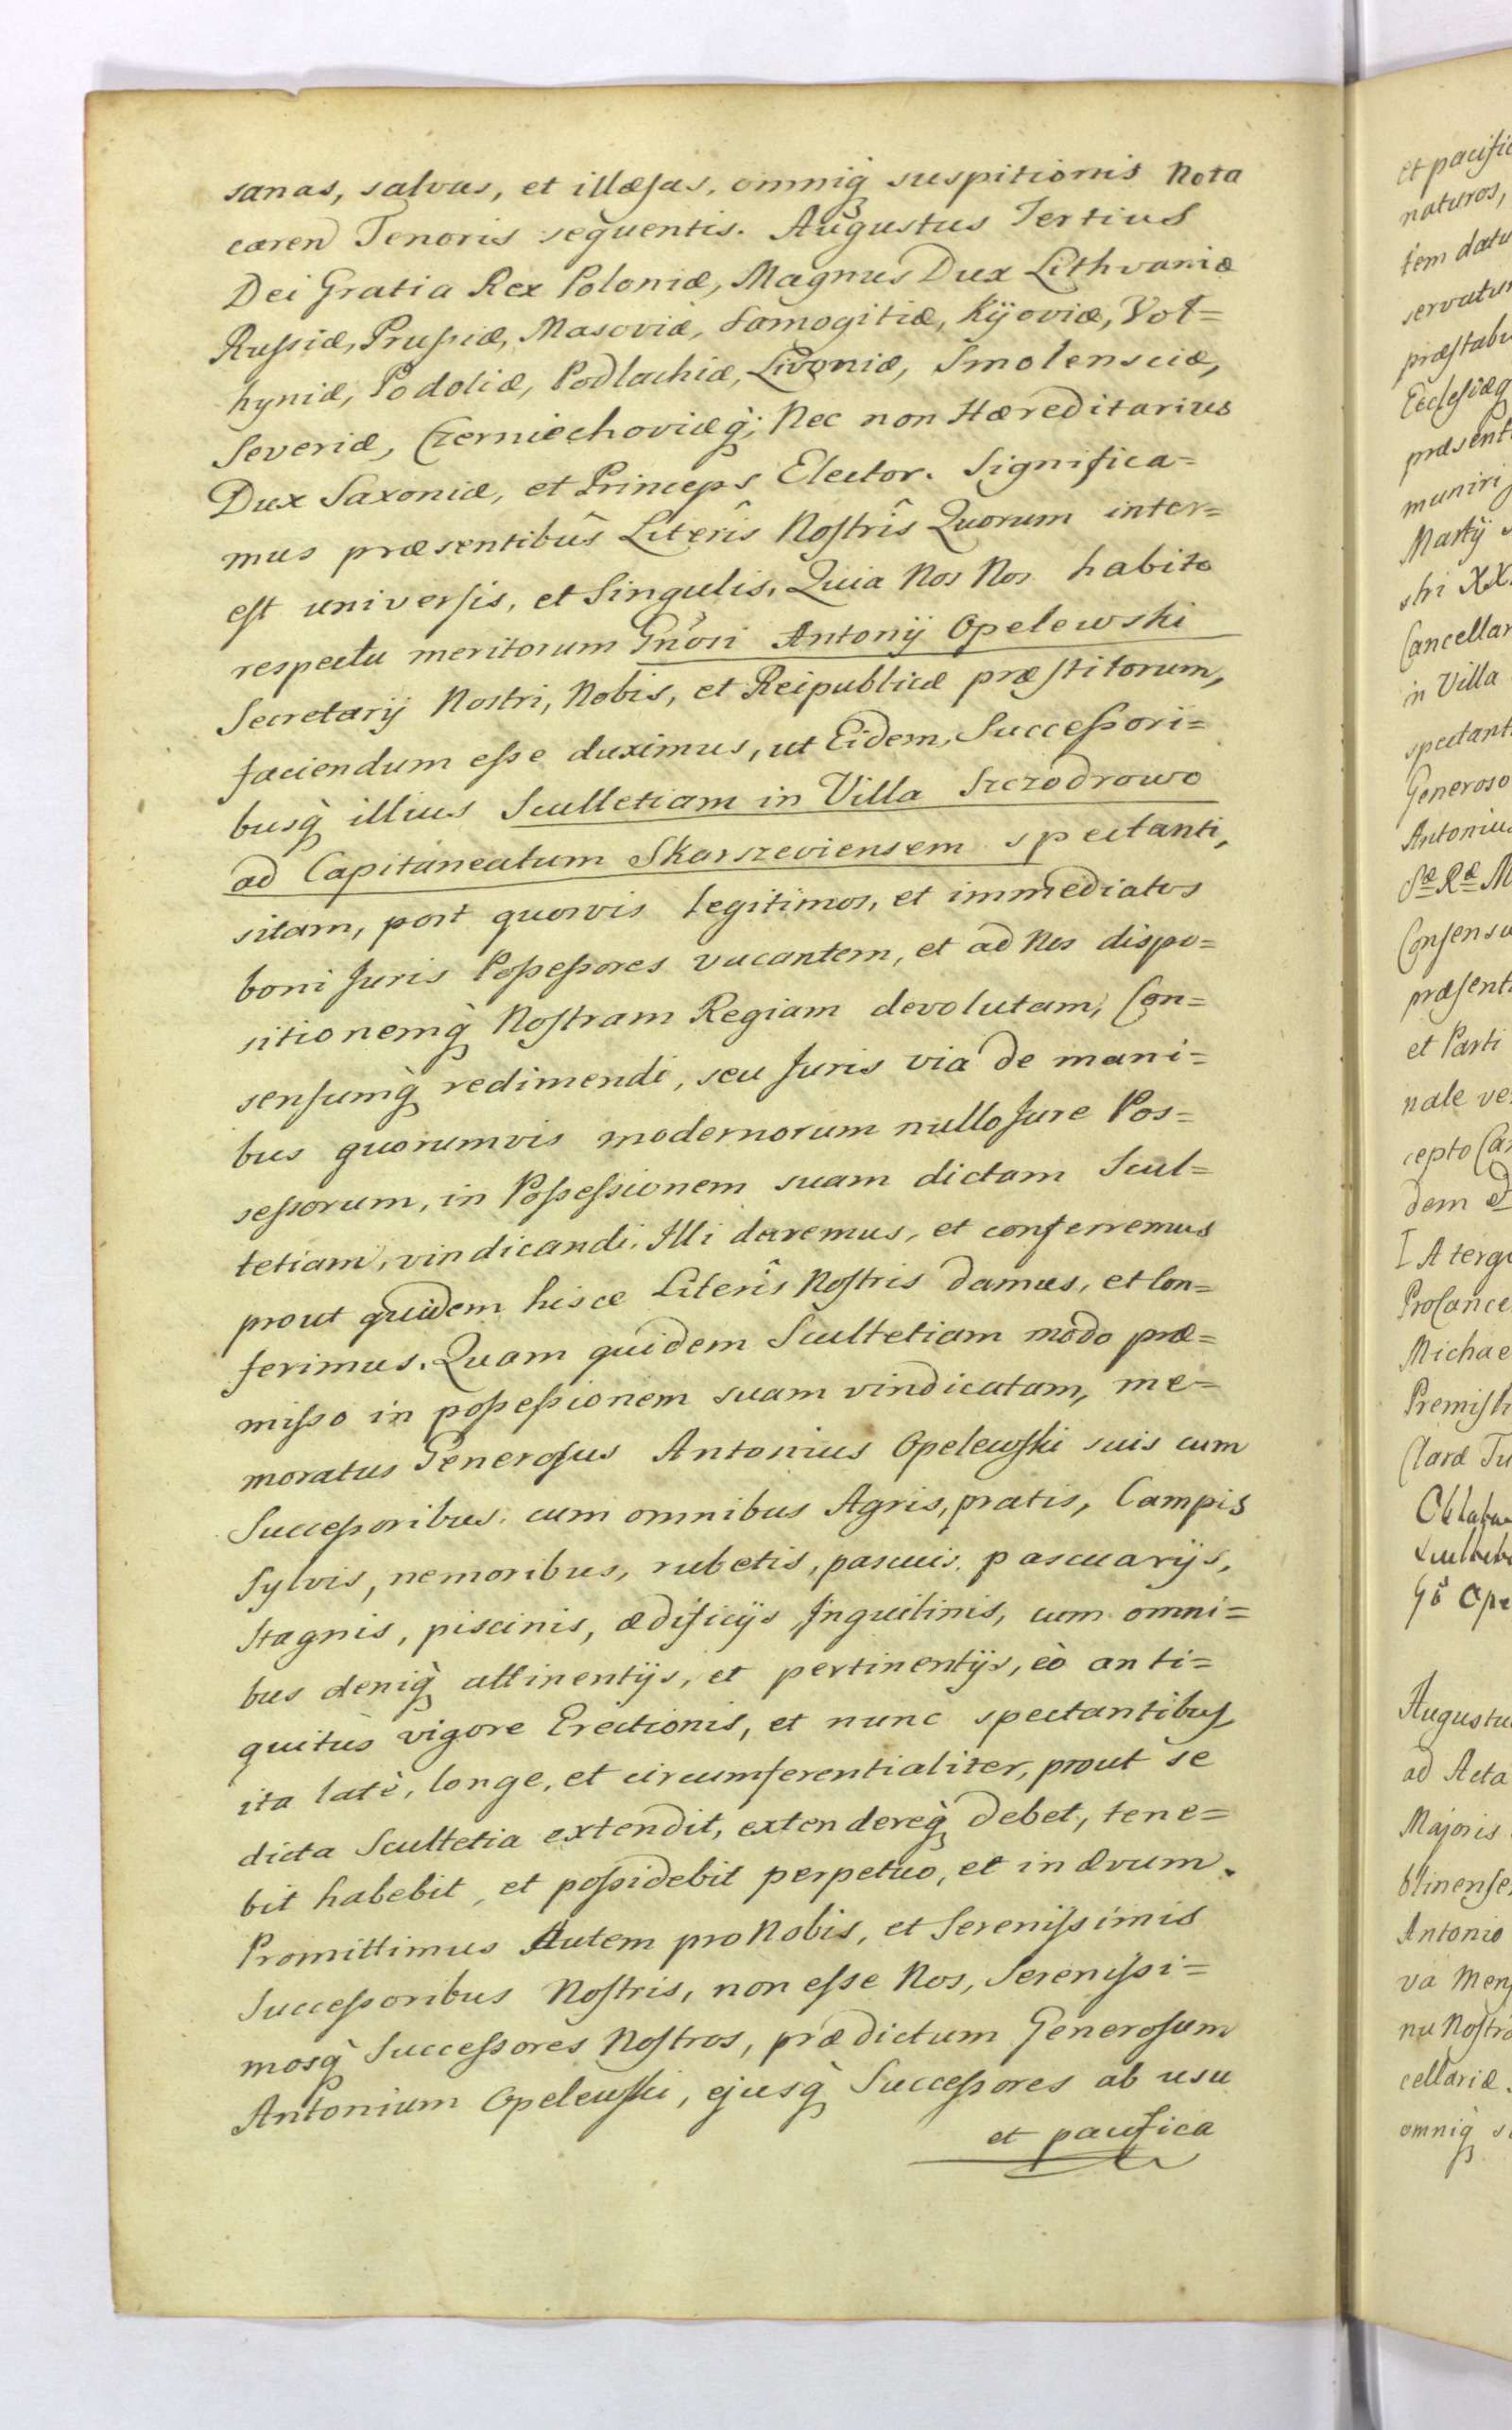 sanas, salvas, et illæsas, omniq̀ suspitionis Nota
caren Tenoris sequentis. Augustus Tertius
Dei Gratia Rex Poloniæ, Magnus Dux Lithvaniæ
Russiæ, Prussiæ, Masoviæ, Samogitiæ, Kijoviæ, Vol=
hyniæ, Podoliæ, Podlachiæ, Livoniæ, Smolensciæ,
Severiæ, Czerniechoviæq̀; Nec non Hæreditarius
Dux Saxoniæ, et Princeps Elector. Significa=
mus præsentibûs Literîs Nostrîs Quorum inter=
est universis, et Singulis, Quia Nos Nos habito
respectu meritorum Gnosi Antonij Opelewski
Secretarij Nostri, Nobis, et Reipublicæ præstitorum,
faciendum esse duximus, ut Eidem, Successori=
busq̀ illius Scultetiam in Villa Szczodrowo
ad Capitaneatum Skarszeviensem spectanti,
sitam, post quosvis legitimos, et immediatos
boni Juris Possessores vacantem, et ad Nos dispo=
sitionemq̀ Nostram Regiam devolutam, Con=
sensumq̀ redimendi, seu Juris via de mani=
bus quorumvis modernorum nullo Jure Pos=
sessorum, in Possessionem suam dictam Scul=
tetiam, vindicandi. Illi daremus, et conferremus
prout quidem hisce Literîs Nostris damus, et Con=
ferimus. Quam quidem Scultetiam modo præ=
misso in possessionem suam vindicatam, me=
moratus Generosus Antonius Opelewski suis cum
Successoribus, cum omnibus Agris, pratis, Campis
Sylvis, nemoribus, rubetis, pascuis, pascuarijs,
Stagnis, piscinis, ædificijs Inquilinis, cum omni=
bus deniq̀ attinentijs, et pertinentijs, eò anti=
quitùs vigore Erectionis, et nunc spectantibus
ita latè, longe, et circumferentialiter, prout se
dicta Scultetia extendit, extendereq̀ debet, tene=
bit habebit, et possidebit perpetuo, et in ævum.
Promittimus Autem pro Nobis, et Serenissimis
Successoribus Nostris, non esse Nos, Serenissi=
mosq̀ Successores Nostros, prædictum Generosum
Antonium Opelewski, ejusq̀ Successores ab usu
et pacifica
et pacific
naturos,
tem datu
servatur
præstabi
Ecclesiæq
præsent
muniri
Martij
stri XX
Cancellar
in Villa
spectant
Generoso
Antonius
Sæ Ræ M
Consensu
præsent
et Parti
nale ve
cepto Ca
dem
A tergo
ProCance
Michae
Premisli
Claræ Tu
Oblata
Sculteti
Opr
Augustu
ad Acta
Majoris
blinense
Antonio
va Mens
nu Nostrâ
cellariæ
omniq̀ s